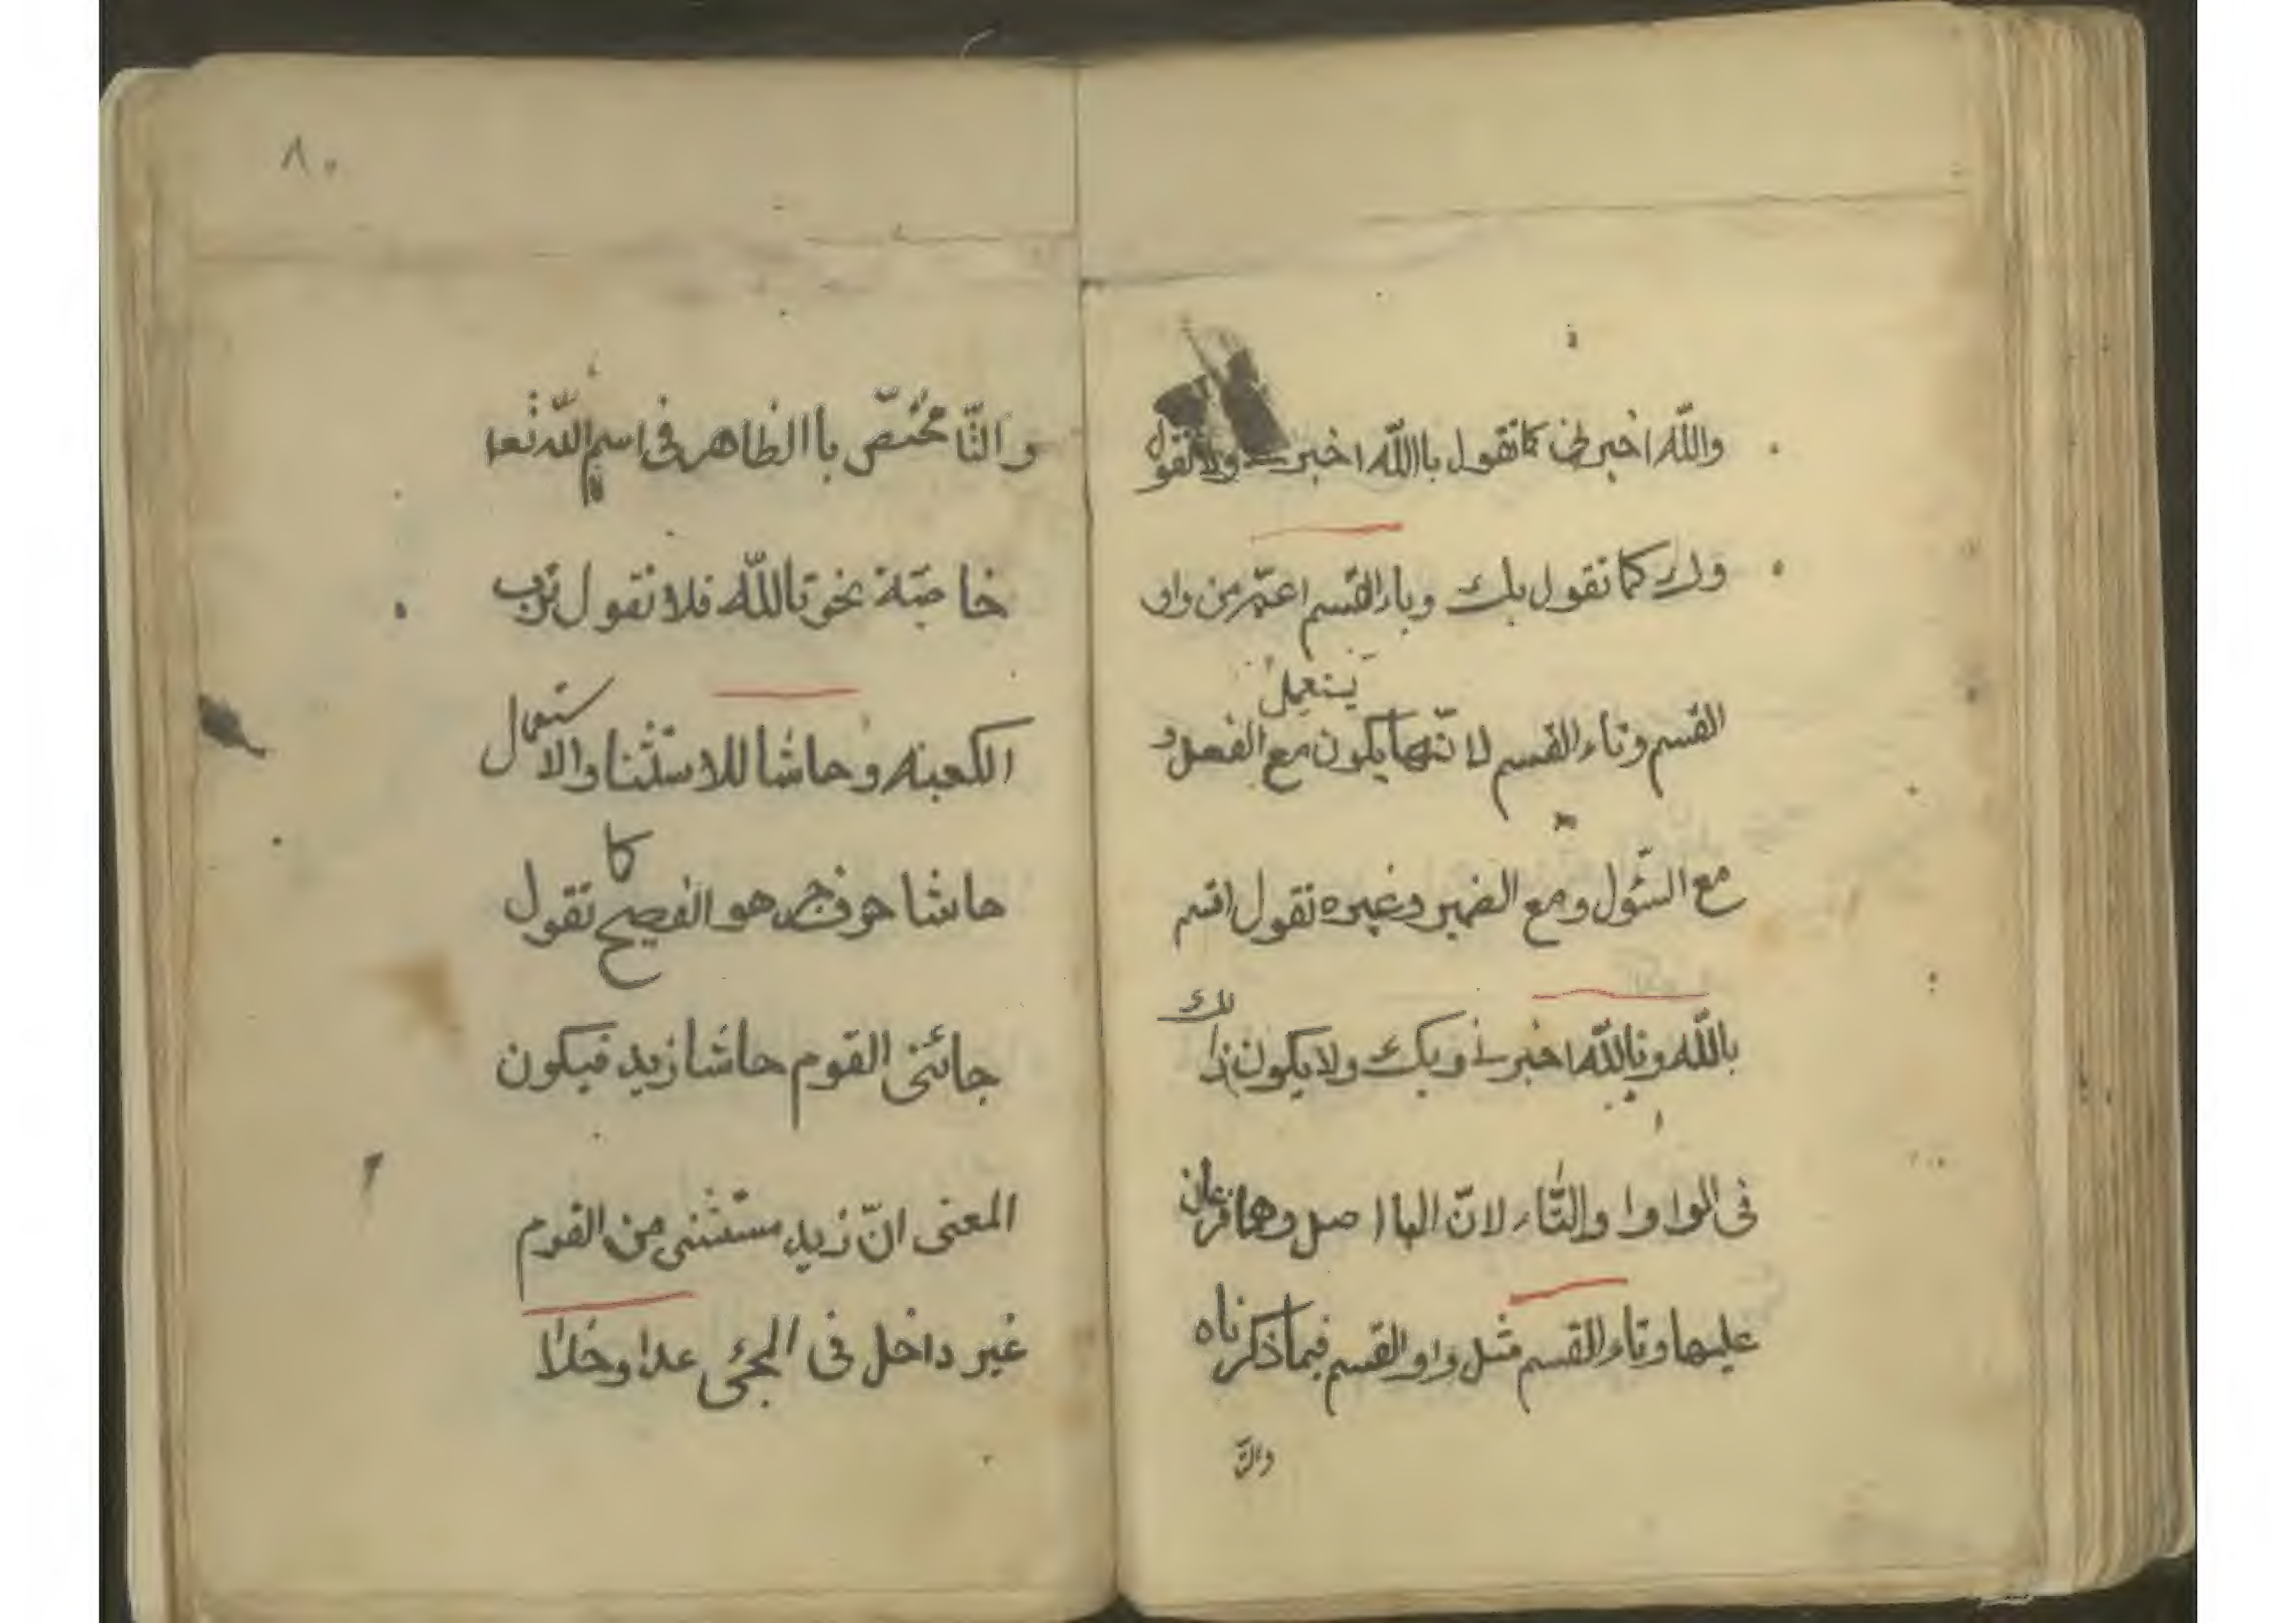 والله اخبرنی كما تقول باالله اخبرنے ولا تقول
وك كما تقول بك وباء القسم اعمّ من واو
القسم وتاء القسم لانّهما يكون مع الفعل و
يستعمل
مع السّؤل ومع الضمير وغيره تقول اقسم
بالله وتالله اخبرنے وبك ولا يكون ذالك
فى الواو وا والتّاء لانّ البا اصل وهما فرعان
عليها وتاء القسم مثل واو القسم فيما ذكرناه
والتّ
٨٠
والتّا مختصّ باالظاهر فى اسم الله تعا
خاصّة نحو تاالله فلا تقول تربّ
الكعبته وحاشا للاستثنا والاستعمال
حاشا حرف جر هو الفصيح كا تقول
جائنى القوم حاشا زيد فيكون
المعنى انّ زيد مستثنى من القوم
غير داخل فى المجئى عدا وخلا